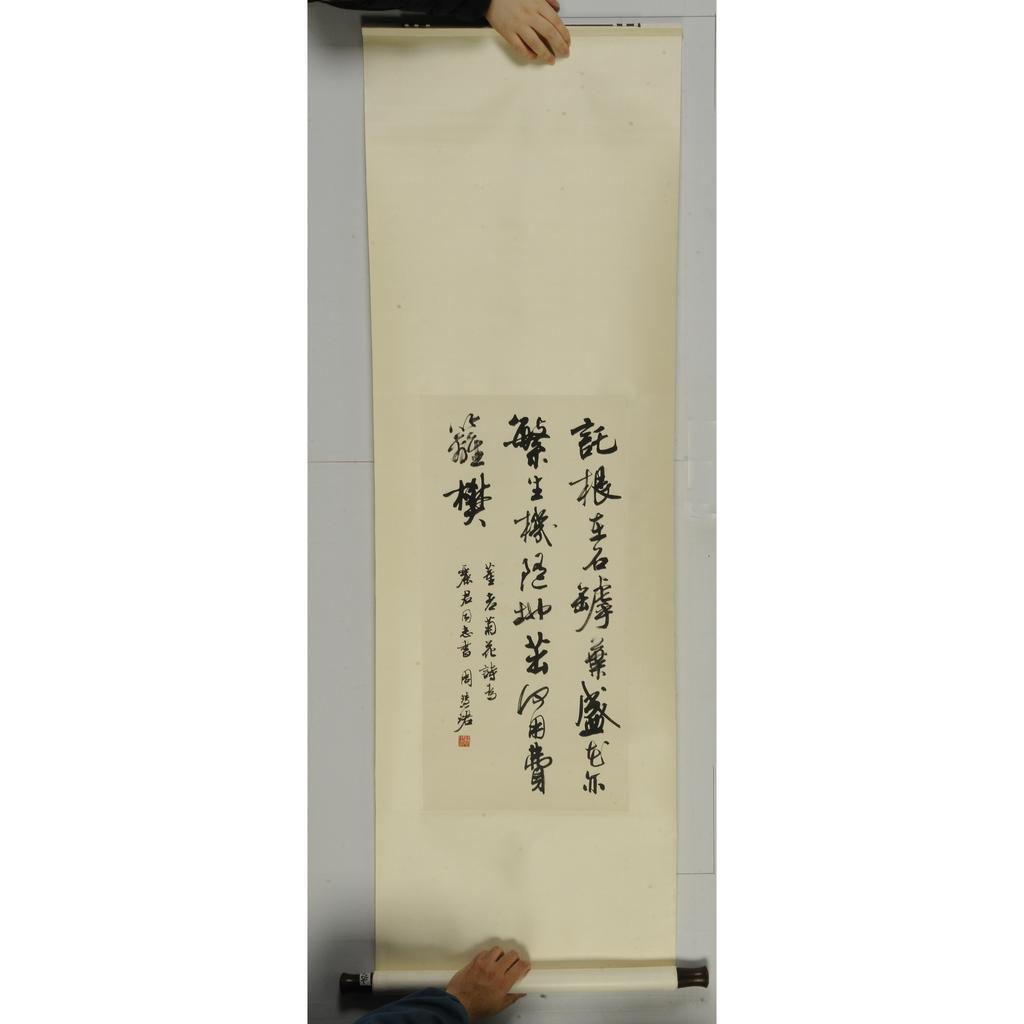 託根在石罅葉盛花亦
繁生機隨地茁何用費
籬樊
董老菊花詩為
君同志書 周慧珺